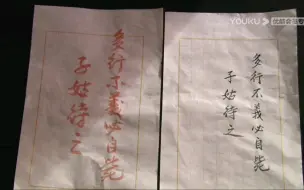 多行不義必自斃
子姑待之
多行不義必自斃
子姑待之
YOUKU